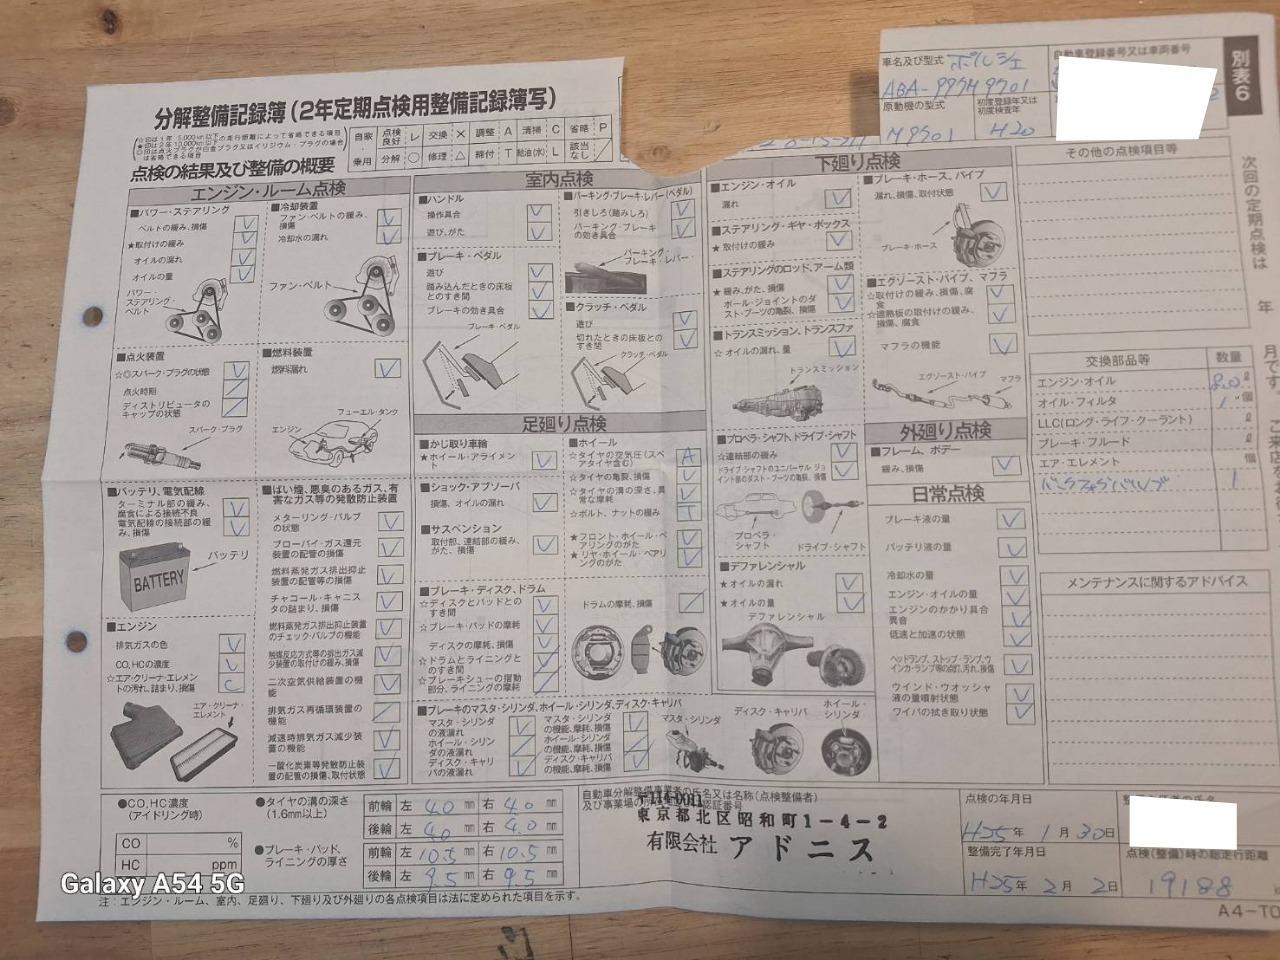 分解整備記録簿(2年定期点検用整備記録簿写)
車名及び型式 ポルシェ
ABA-997M9701
自動車登録番号又は車両番号
別表6
原動機の型式
初度登録年又は初度検査年
M9701
H20
点検の結果及び整備の概要
自家
乗用
点検良好 レ 交換 × 調整 A 清掃 C 省略 P
分解 ○ 修理 △ 締付 T 給油(水) L 該当なし /
エンジン・ルーム点検
■パワー・ステアリング
ベルトの緩み、損傷
★取付けの緩み
オイルの漏れ
オイルの量
パワー・ステアリング・ベルト
■冷却装置
ファン・ベルトの緩み、損傷
冷却水の漏れ
ファン・ベルト
■点火装置
☆◎スパーク・プラグの状態
点火時期
ディストリビュータのキャップの状態
スパーク・プラグ
■燃料装置
燃料漏れ
フューエル・タンク
エンジン
■バッテリ、電気配線
ターミナル部の緩み、腐食による接続不良
電気配線の接続部の緩み、損傷
バッテリ
BATTERY
■ばい煙、悪臭のあるガス、有害なガス等の発散防止装置
メターリング・バルブの状態
ブローバイ・ガス還元装置の配管の損傷
燃料蒸発ガス排出抑止装置の配管等の損傷
チャコール・キャニスタの詰まり、損傷
燃料蒸発ガス排出抑止装置のチェック・バルブの機能
触媒反応方式等の排出ガス減少装置の取付けの緩み、損傷
二次空気供給装置の機能
排気ガス再循環装置の機能
減速時排気ガス減少装置の機能
一酸化炭素等発散防止装置の配管の損傷、取付状態
■エンジン
排気ガスの色
CO,HCの濃度
☆エア・クリーナ・エレメントの汚れ、詰まり、損傷 C
エア・クリーナ・エレメント
室内点検
■ハンドル
操作具合
遊び、がた
■ブレーキ・ペダル
遊び
踏み込んだときの床板とのすき間
ブレーキの効き具合
ブレーキ・ペダル
■パーキング・ブレーキ・レバー(ペダル)
引きしろ(踏みしろ)
パーキング・ブレーキの効き具合
パーキング・ブレーキ・レバー
■クラッチ・ペダル
遊び
切れたときの床板とのすき間
クラッチ・ペダル
足廻り点検
■かじ取り車輪
★ホイール・アライメント
■ショック・アブソーバ
損傷、オイルの漏れ
■サスペンション
取付部、連結部の緩み、がた、損傷
■ホイール
☆タイヤの空気圧(スペアタイヤ含む) A
☆タイヤの亀裂、損傷
☆タイヤの溝の深さ、異常な摩耗
☆ボルト、ナットの緩み T
★フロント・ホイール・ベアリングのがた
★リヤ・ホイール・ベアリングのがた
■ブレーキ・ディスク、ドラム
☆ディスクとパッドとのすき間
☆ブレーキ・パッドの摩耗
ディスクの摩耗、損傷
☆ドラムとライニングとのすき間
☆ブレーキシューの摺動部分、ライニングの摩耗
ドラムの摩耗、損傷
■ブレーキのマスタ・シリンダ、ホイール・シリンダ、ディスク・キャリパ
マスタ・シリンダの液漏れ
ホイール・シリンダの液漏れ
ディスク・キャリパの液漏れ
マスタ・シリンダの機能、摩耗、損傷
ホイール・シリンダの機能、摩耗、損傷
ディスク・キャリパの機能、摩耗、損傷
マスタ・シリンダ
ディスク・キャリパ
ホイール・シリンダ
下廻り点検
■エンジン・オイル
漏れ
■ステアリング・ギヤ・ボックス
★取付けの緩み
■ステアリングのロッド、アーム類
★緩み、がた、損傷
ボール・ジョイントのダスト・ブーツの亀裂、損傷
■トランスミッション、トランスファ
☆オイルの漏れ、量
トランスミッション
■プロペラ・シャフト、ドライブ・シャフト
☆連結部の緩み
ドライブ・シャフトのユニバーサル・ジョイント部のダスト・ブーツの亀裂、損傷
プロペラ・シャフト
ドライブ・シャフト
■デファレンシャル
★オイルの漏れ
★オイルの量
デファレンシャル
■ブレーキ・ホース、パイプ
漏れ、損傷、取付状態
ブレーキ・ホース
■エグゾースト・パイプ、マフラ
☆取付けの緩み、損傷、腐食
☆遮熱板の取付けの緩み、損傷、腐食
マフラの機能
エグゾースト・パイプ
マフラ
外廻り点検
■フレーム、ボデー
緩み、損傷
日常点検
ブレーキ液の量
バッテリ液の量
冷却水の量
エンジン・オイルの量
エンジンのかかり具合異音
低速と加速の状態
ヘッドランプ、ストップ・ランプ、ウインカ・ランプ等の点灯、汚れ、損傷
ウインド・ウオッシャ液の量噴射状態
ワイパの拭き取り状態
その他の点検項目等
交換部品等 数量
エンジン・オイル 8.0 ℓ
オイル・フィルタ 1 個
LLC(ロング・ライフ・クーラント) ℓ
ブレーキ・フルード ℓ
エア・エレメント 個
バックフォグバルブ 1
メンテナンスに関するアドバイス
次回の定期点検は
年
月です。
●CO,HC濃度(アイドリング時)
CO %
HC ppm
●タイヤの溝の深さ(1.6mm以上)
前輪 左 4.0 mm 右 4.0 mm
後輪 左 4.0 mm 右 4.0 mm
●ブレーキ・パッド、ライニングの厚さ
前輪 左 10.5 mm 右 10.5 mm
後輪 左 9.5 mm 右 9.5 mm
〒114-0011
東京都北区昭和町1-4-2
有限会社 アドニス
点検の年月日
H25年 1月 30日
整備完了年月日
H25年 2月 2日
点検(整備)時の総走行距離
19188
注:エンジン・ルーム、室内、足廻り、下廻り及び外廻りの各点検項目は法に定められた項目を示す。
A4-TO
Galaxy A54 5G